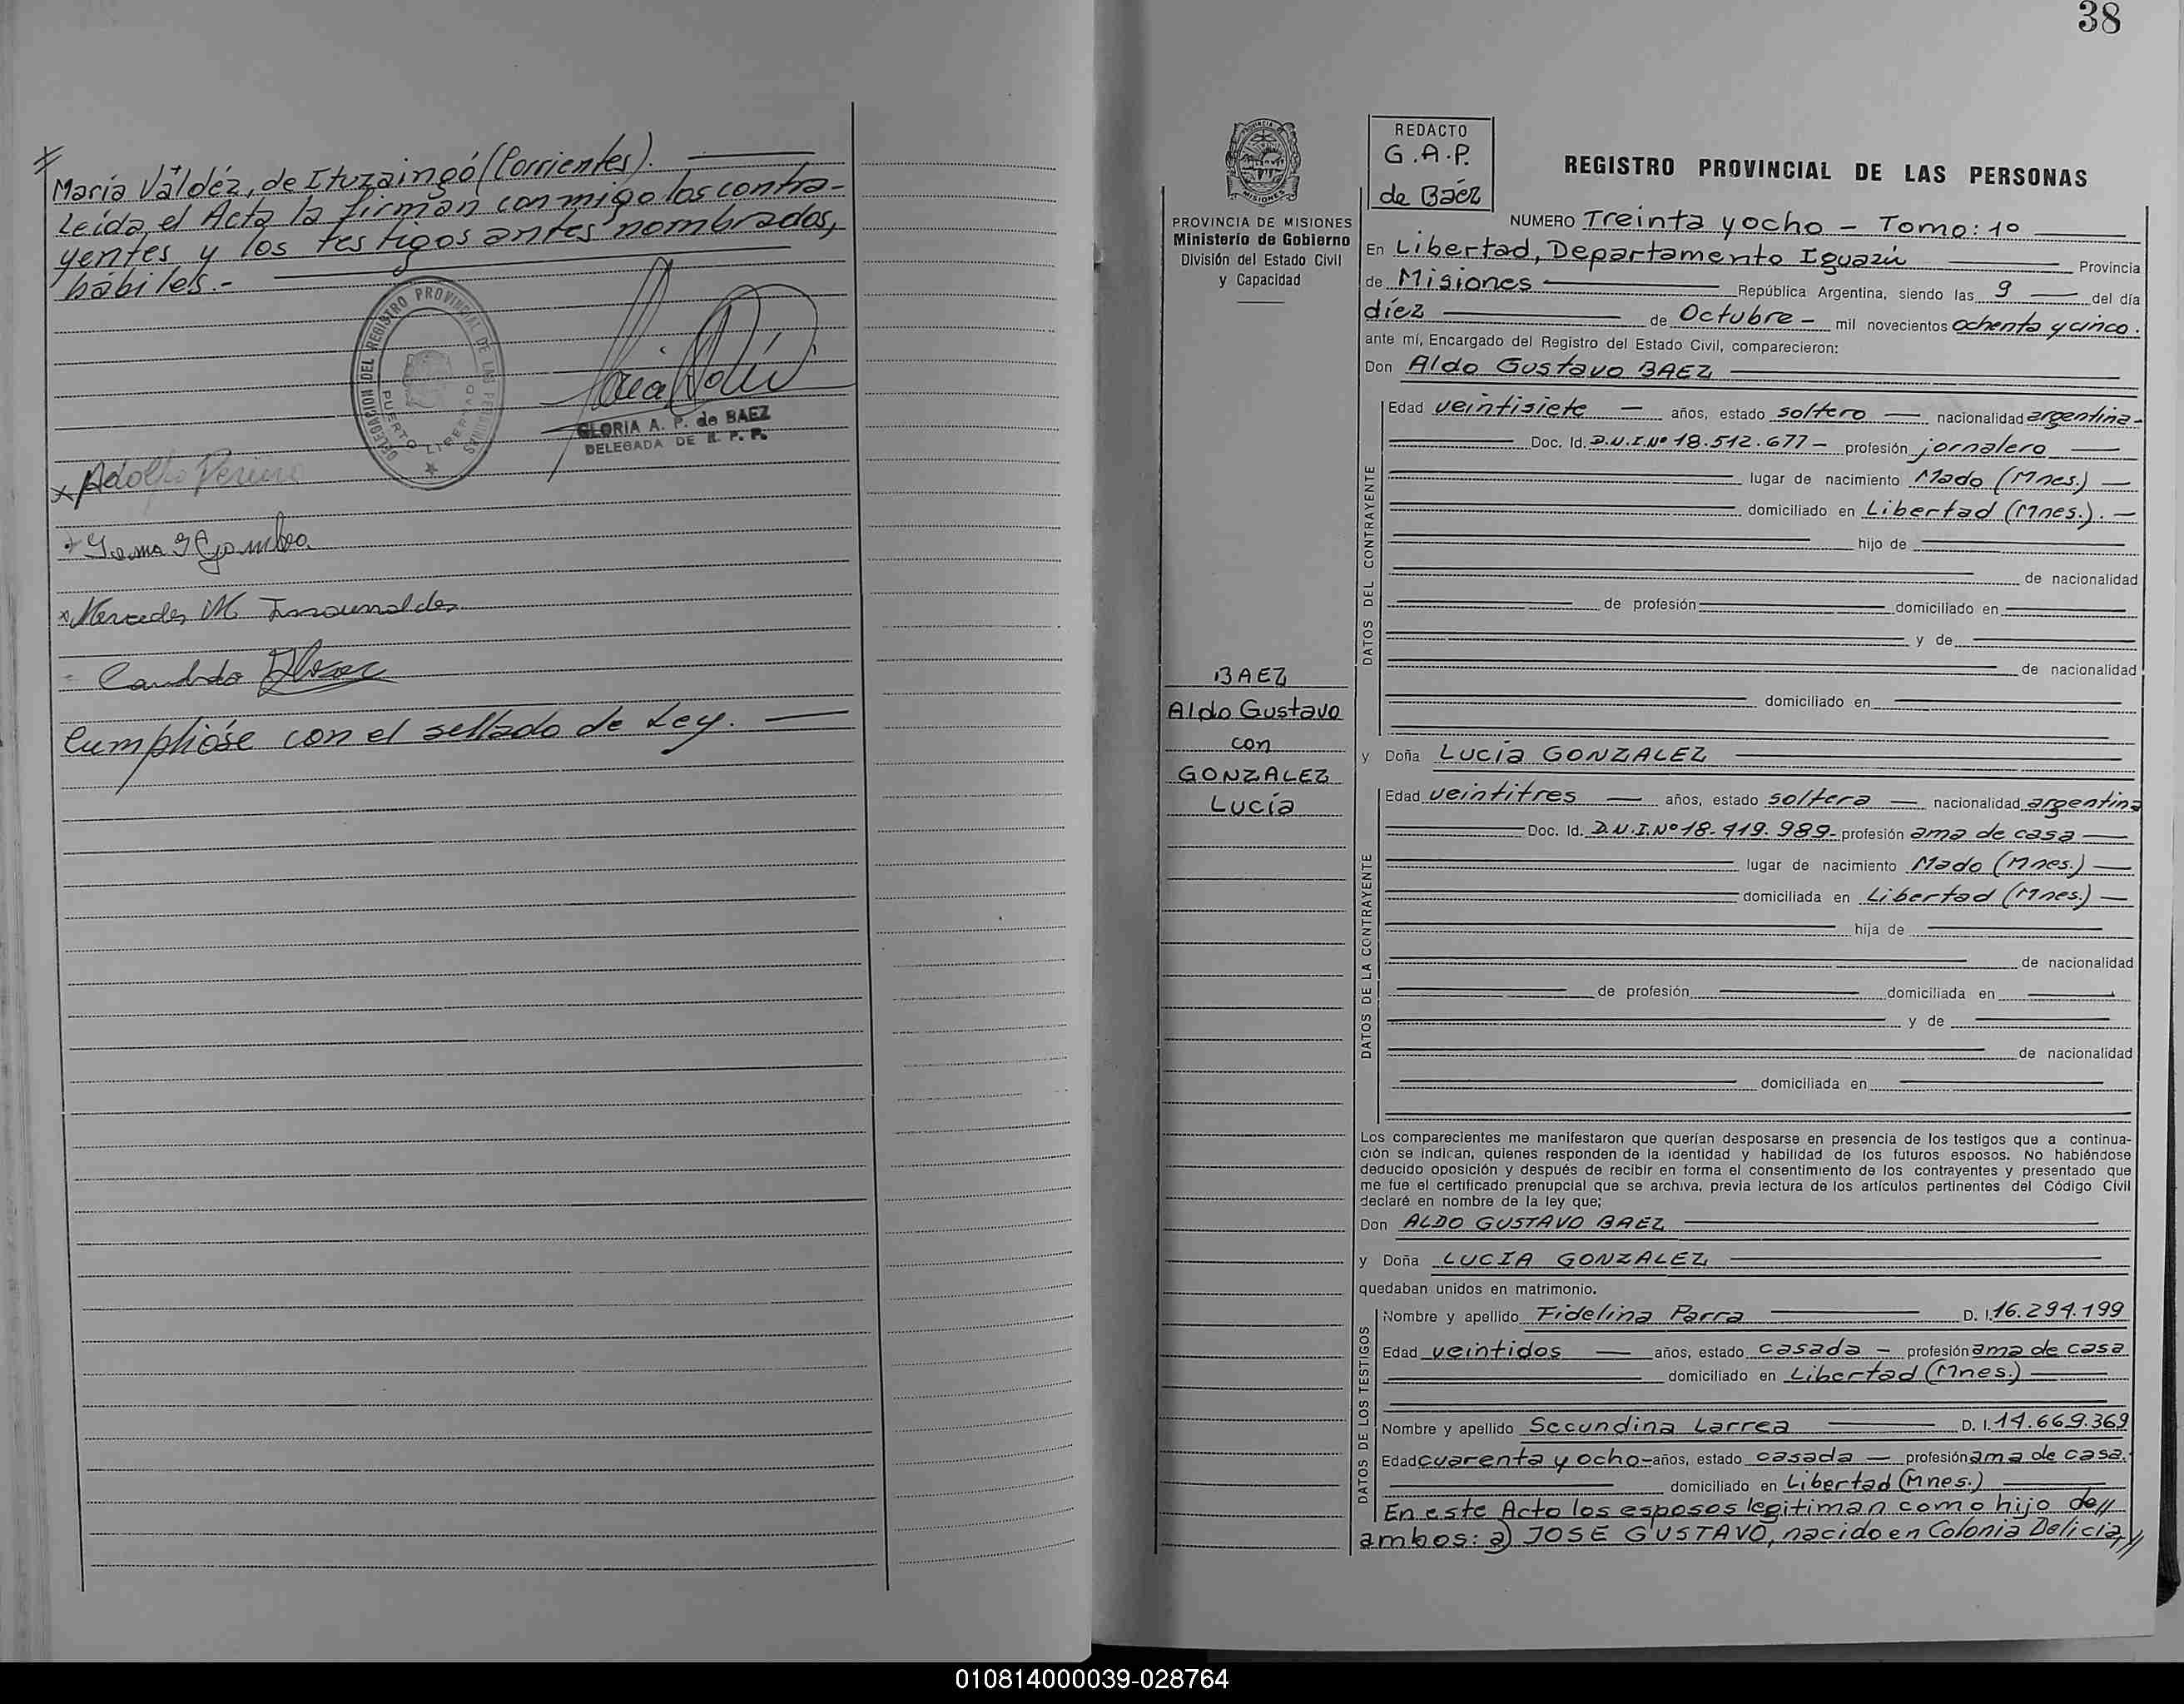 María Valdéz, de Ituzaingó (Corrientes).
Leída el Acta la firman conmigo los contra-
yentes y los testigos antes nombrados,
hábiles.-
DELEGACION DEL REGISTRO PROVINCIAL DE LAS PERSONAS
PUERTO LIBERTAD
GLORIA A. P. de BAEZ
DELEGADA DE R. P. P.
Adolfo
Mercedes M
Candido
Cumplióse con el sellado de Ley.
38
PROVINCIA DE MISIONES
Ministerio de Gobierno
División del Estado Civil
y Capacidad
BAEZ
Aldo Gustavo
con
GONZALEZ
Lucía
REDACTO
G.A.P.
de Báez
REGISTRO PROVINCIAL DE LAS PERSONAS
NUMERO Treinta y ocho - Tomo: 1º
En Libertad, Departamento Iguazú Provincia
de Misiones República Argentina, siendo las 9 del día
diéz de Octubre - mil novecientos ochenta y cinco.
ante mí, Encargado del Registro del Estado Civil, comparecieron:
Don Aldo Gustavo BAEZ
DATOS DEL CONTRAYENTE
Edad veintisiete años, estado soltero nacionalidad argentina-
Doc. Id. D.N.I.Nº 18.512.677- profesión jornalero
lugar de nacimiento Mado (Mnes.)
domiciliado en Libertad (Mnes.).
hijo de
de nacionalidad
de profesión domiciliado en
y de
de nacionalidad
domiciliado en
y Doña Lucía GONZALEZ
DATOS DE LA CONTRAYENTE
Edad veintitres años, estado soltera nacionalidad argentina
Doc. Id. D.N.I.Nº 18.419.989- profesión ama de casa
lugar de nacimiento Mado (Mnes.)
domiciliada en Libertad (Mnes.)
hija de
de nacionalidad
de profesión domiciliada en
y de
de nacionalidad
domiciliada en
Los comparecientes me manifestaron que querían desposarse en presencia de los testigos que a continua-
ción se indican, quienes responden de la identidad y habilidad de los futuros esposos. No habiéndose
deducido oposición y después de recibir en forma el consentimiento de los contrayentes y presentado que
me fue el certificado prenupcial que se archiva, previa lectura de los artículos pertinentes del Código Civil
declaré en nombre de la ley que;
Don ALDO GUSTAVO BAEZ
y Doña LUCIA GONZALEZ
quedaban unidos en matrimonio.
DATOS DE LOS TESTIGOS
Nombre y apellido Fidelina Parra D. I. 16.294.199
Edad veintidos años, estado casada - profesión ama de casa
domiciliado en Libertad (Mnes.)
Nombre y apellido Secundina Larrea D. I. 14.669.369
Edad cuarenta y ocho- años, estado casada - profesión ama de casa.
domiciliado en Libertad (Mnes.)
En este Acto los esposos legitiman como hijo de//
ambos: a) JOSE GUSTAVO, nacido en Colonia Delicia,//
010814000039-028764